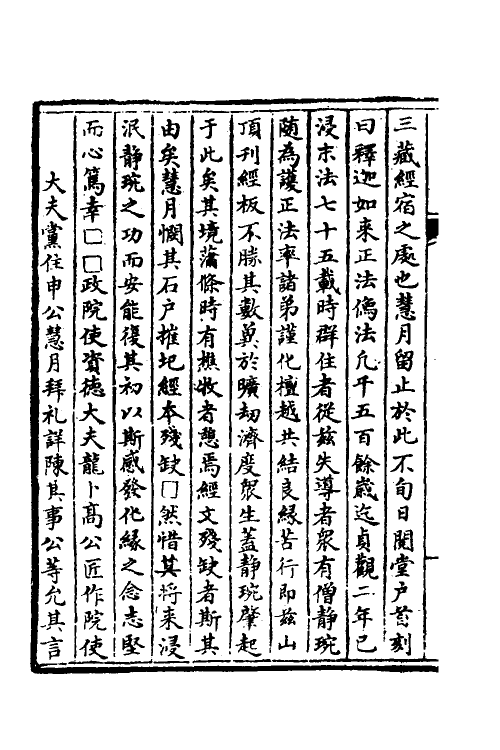 三藏經宿之處也慧月留止於此不旬日閱堂户首刻
曰釋迦如來正法僞法凢千五百餘歳迄貞觀二年已
浸末法七十五載時群住者從兹失導者衆有僧静琬
随為護正法率諸弟謹化檀越共結良緣苦行即兹山
頂刊經板不勝其數兾於曠劫濟度衆生盖静琬肇起
于此矣其境蕭條時有樵牧者憩焉經文殘缺者斯其
由矣慧月憫其石户摧圮經本殘缺□然惜其将来浸
泯静琬之功而安能復其初以斯感發化緣之念志堅
而心篤幸□□政院使資德大夫龍卜髙公匠作院使
大夫黨住申公慧月拜礼詳陳其事公等允其言